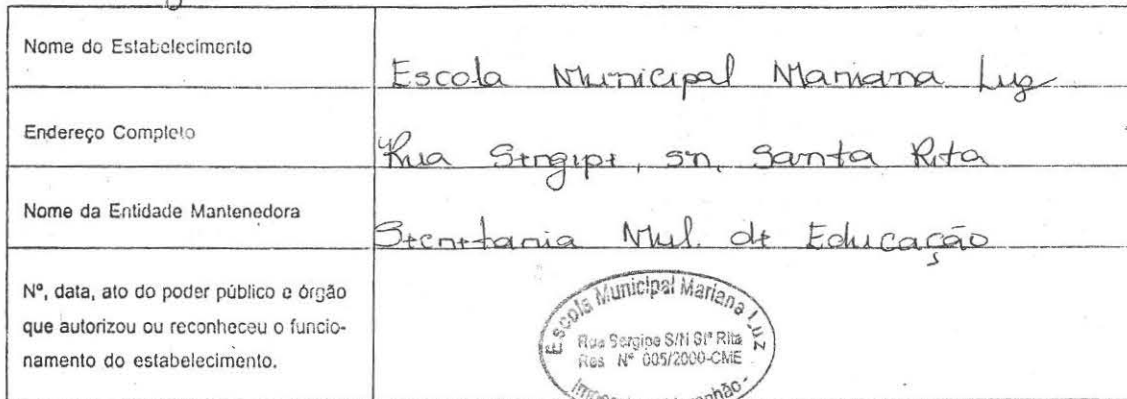 Nome do Estabelecimento
Escola Municipal Mariana Luz
Endereço Completo
Rua Sergipe, sn, Santa Rita
Nome da Entidade Mantenedora
Secretaria Mul. de Educação
Nº, data, ato do poder público e órgão
que autorizou ou reconheceu o funcio-
namento do estabelecimento.
Escola Municipal Mariana Luz
Rua Sergipe S/N Stª Rita
Res Nº 005/2000-CME